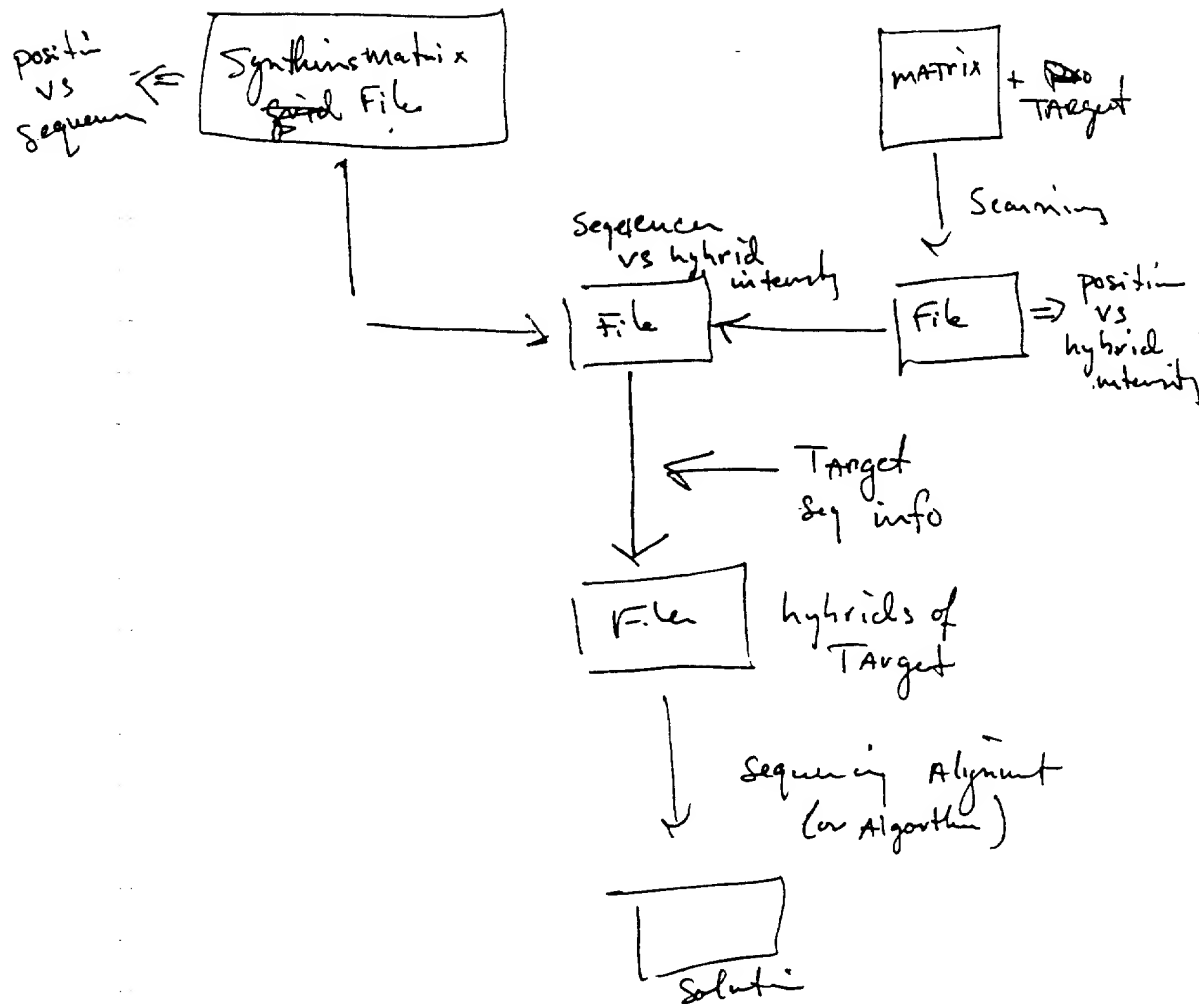 positin
vs
sequence
Synthesis matrix
File
MATrix + TARget
Scanning
Sequences
vs hybrid
intensity
File
File
positin
vs
hybrid
intensity
TArget
seq info
File
hybrids of
TArget
Sequencing Alignment
(or Algorithm)
Solution